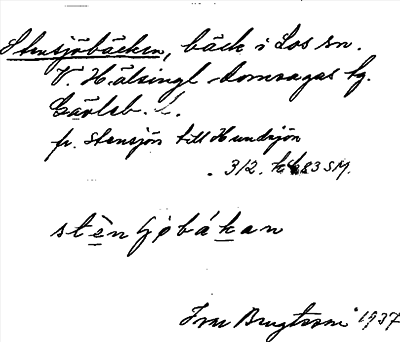 Stensjöbäcken, bäck i Los sn.
V. Hälsingl. domsagas tg.
Gävleb. L.
fr. Stensjön till Hundsjön
312. 83 SM.
stènʃøbákan
1937